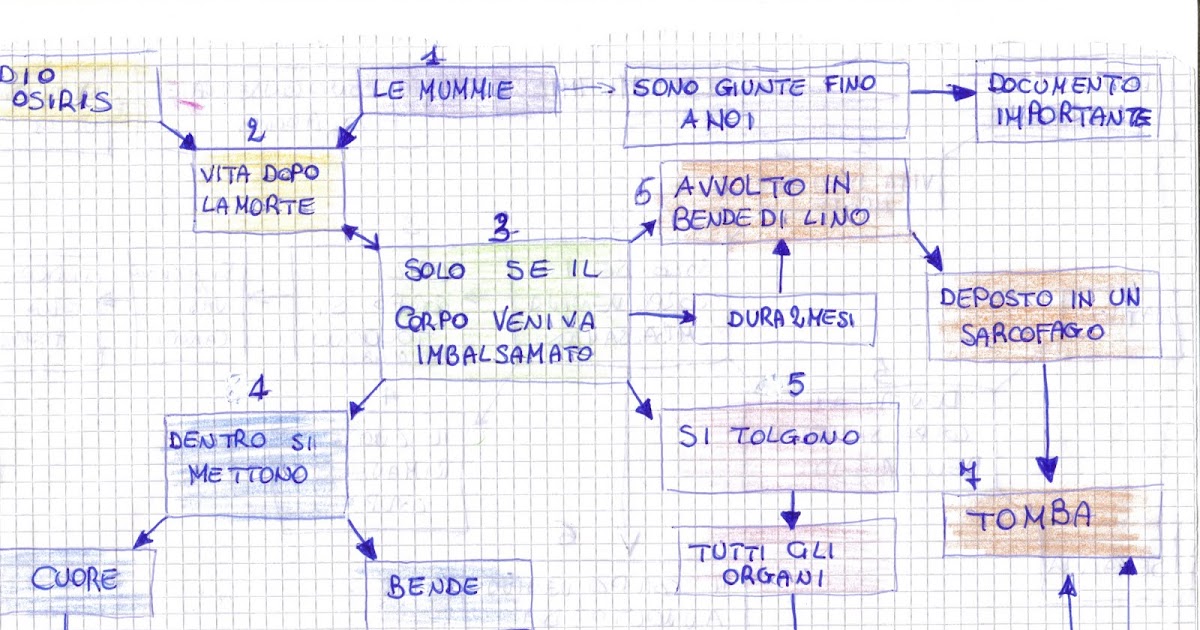 DIO
OSIRIS
1
LE MUMMIE
SONO GIUNTE FINO
A NOI
DOCUMENTO
IMPORTANTE
2
VITA DOPO
LA MORTE
6
AVVOLTO IN
BENDE DI LINO
3
SOLO SE IL
CORPO VENIVA
IMBALSAMATO
DURA 2 MESI
DEPOSTO IN UN
SARCOFAGO
4
DENTRO SI
METTONO
5
SI TOLGONO
7
TOMBA
TUTTI GLI
ORGANI
CUORE
BENDE